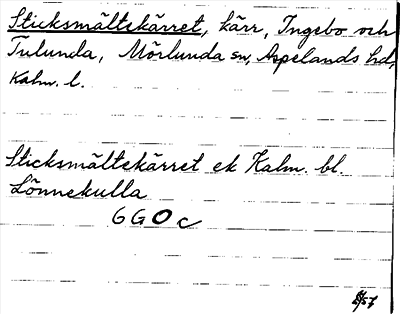 Sticksmåltekärret, kärr, Ingebo och
Tulunda, Mörlunda sn, Aspelands hd,
Kalm. l.
Sticksmåltekärret ek Kalm. bl.
Lönnekulla
6 G O c